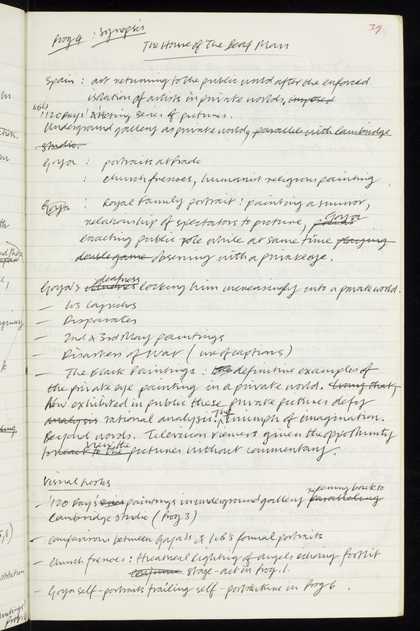 Prog 4 : Synopsis
79
The House of The Deaf Man
Spain : art returning to the public world after the enforced
isolation of artists in private worlds, imposed
'120 Days' series of pictures.
Underground gallery as private world, parallel with Cambridge
studio.
Goya : portraits at Prado
: church frescoes, humanist religious painting.
Goya : Royal family portrait : painting a mirror,
relationship of spectators to picture, Goya
enacting public role while at same time playing
double game observing with a private eye.
Goya's deafness locking him increasingly into a private world.
— Los Caprichos
— Disparates
— 2nd & 3rd May paintings
— Disasters of War (use of captions)
— The Black Paintings : definitive examples of
the private eye painting in a private world.
Now exhibited in public these private pictures defy
analysis rational analysis. The triumph of imagination.
Beyond words. Television viewers given the opportunity
to view the pictures without commentary.
Visual hooks
— '120 Days' paintings in underground gallery, running back to
Cambridge studio (Prog 3)
— comparison between Goya's & formal portraits
— Church frescoes : theatrical lighting of angels echoing
stage-act in Prog. 1.
— Goya self-portraits trailing self-portraiture in Prog 6.